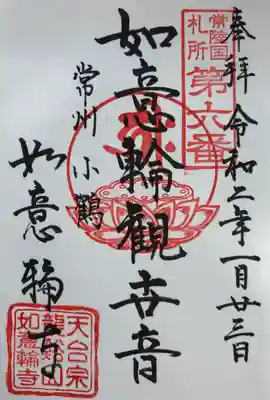 奉拝 令和二年一月廿三日
常陸国
札所
第六番
如意輪観世音
常州 小鶴
如意輪寺
天台宗
如意輪寺